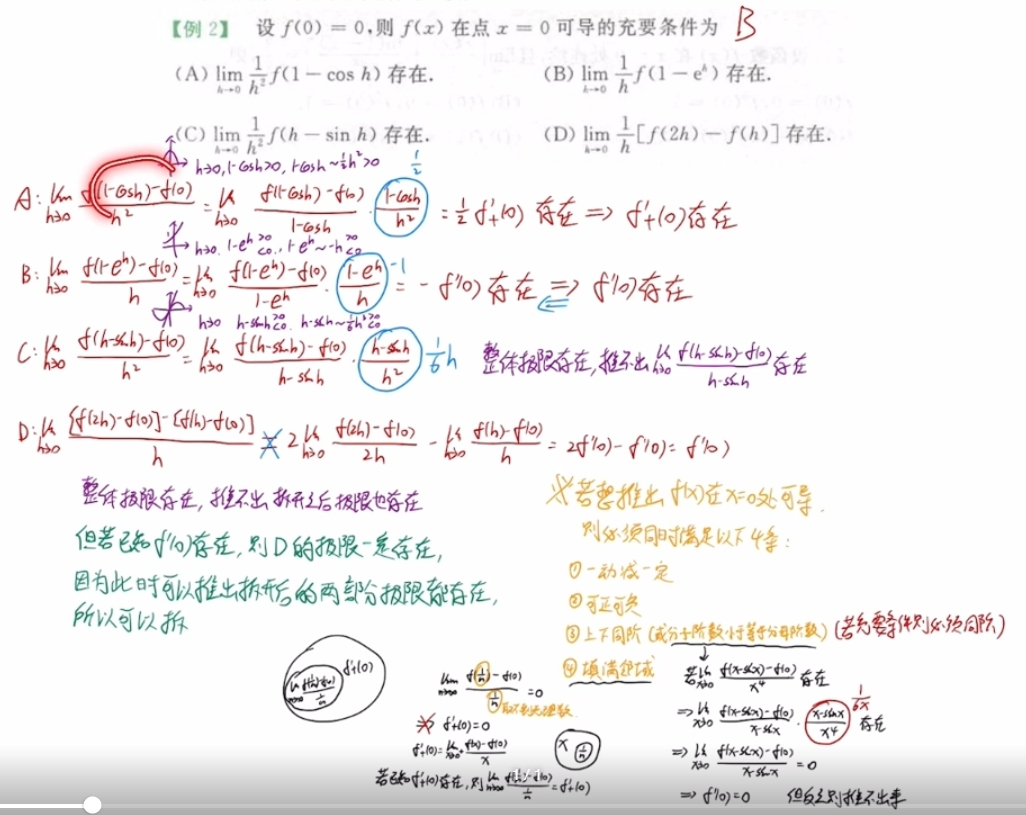 【例2】 设 f(0) = 0,则 f(x) 在点 x = 0 可导的充要条件为 B
(A) lim_{h→0} 1/h² f(1 − cos h) 存在. (B) lim_{h→0} 1/h f(1 − e^h) 存在.
(C) lim_{h→0} 1/h² f(h − sin h) 存在. (D) lim_{h→0} 1/h [f(2h) − f(h)] 存在.
h→0, 1-cosh>0, 1-cosh~½h²>0
A: lim_{h→0} (f(1-cosh)-f(0))/h² = lim_{h→0} (f(1-cosh)-f(0))/(1-cosh) · (1-cosh)/h² = ½f'₊(0) 存在 ⇒ f'₊(0)存在
1/2
h→0, 1-e^h ≷0, 1-e^h~-h ≷0
B: lim_{h→0} (f(1-e^h)-f(0))/h = lim_{h→0} (f(1-e^h)-f(0))/(1-e^h) · (1-e^h)/h = -f'(0) 存在 ⇒ f'(0)存在
-1 ⇐
h→0 h-sinh ≷0, h-sinh~1/6h³ ≷0
C: lim_{h→0} (f(h-sinh)-f(0))/h² = lim_{h→0} (f(h-sinh)-f(0))/(h-sinh) · (h-sinh)/h² 1/6h 整体极限存在,推不出 lim_{h→0} (f(h-sinh)-f(0))/(h-sinh) 存在
D: lim_{h→0} ([f(2h)-f(0)]-[f(h)-f(0)])/h = 2 lim_{h→0} (f(2h)-f(0))/2h - lim_{h→0} (f(h)-f(0))/h = 2f'(0)-f'(0)=f'(0)
整体极限存在,推不出拆开之后极限也存在
但若已知f'(0)存在,则D的极限一定存在,
因为此时可以推出拆开后的两部分极限都存在,
所以可以拆
※若想推出f(x)在x=0处可导,
则必须同时满足以下4条:
①一动减一定
②可正可负
③上下同阶(或分子阶数小于等于分母阶数)(若充要条件则必须同阶)
④填满邻域
f'₊(0)
lim_{n→∞} (f(1/n)-f(0))/(1/n) =0
⇏ f'₊(0)=0
f'₊(0)=lim_{x→0⁺} (f(x)-f(0))/x
x 1/n
若已知f'₊(0)存在,则lim_{n→∞} (f(1/n)-f(0))/(1/n) =f'₊(0)
1/1
若lim_{x→0} (f(x-sinx)-f(0))/x⁴ 存在
⇒ lim_{x→0} (f(x-sinx)-f(0))/(x-sinx) · (x-sinx)/x⁴ 存在
1/6x
⇒ lim_{x→0} (f(x-sinx)-f(0))/(x-sinx) =0
⇒ f'(0)=0 但反之则推不出来